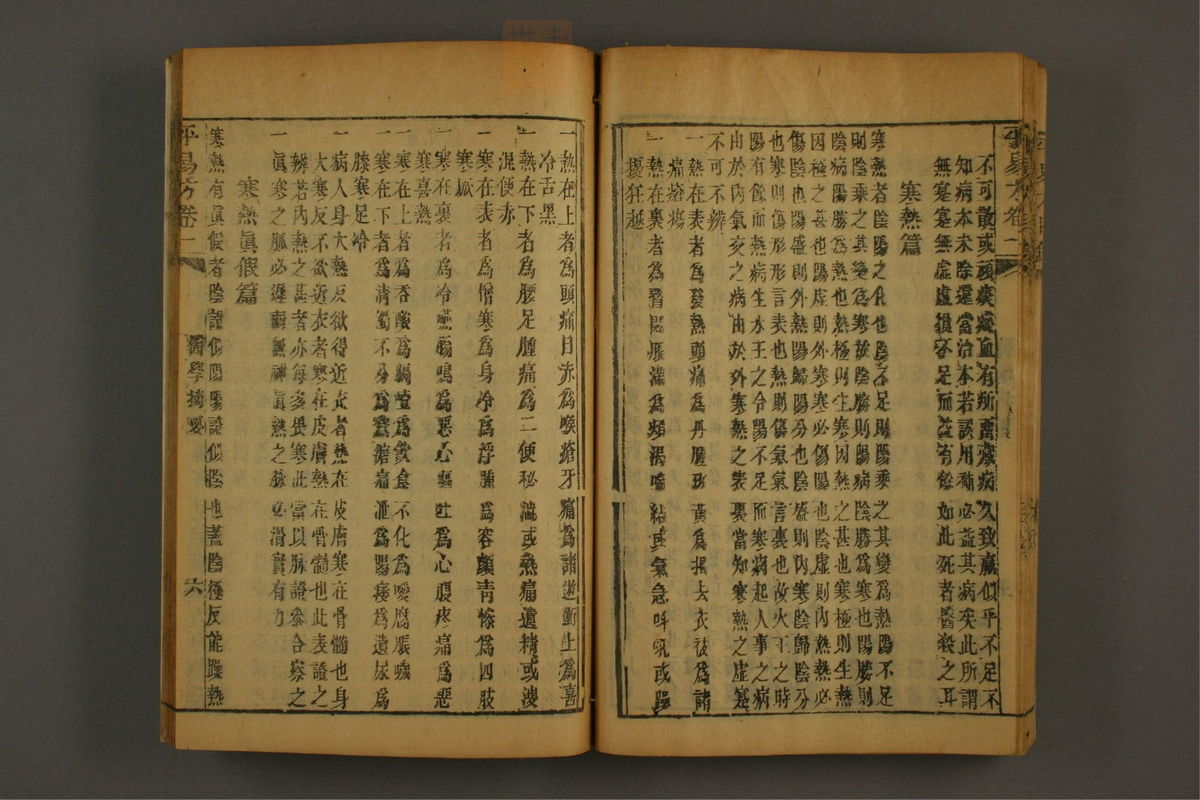 不可散或頭瘡瘍血有所患癥病久致羸似乎不足不
知病本未除還當治本若誤用補必益其病矣此所謂
無寔寔無虛虛損不足而益有餘如此死者醫殺之耳
寒熱篇
寒熱者陰陽之化也陰不足則陽乘之其變為熱陽不足
則陰乘之其變為寒故陰勝則陽病陰勝為寒也陽勝則
陰病陽勝為熱也熱極則生寒因熱之甚也寒極則生熱
因極之甚也陽虛則外寒寒必傷陽也陰虛則內熱熱必
傷陰也陽盛則外熱陽歸陽分也陰盛則內寒陰歸陰分
也寒則傷形形言表也熱則傷氣氣言裏也故火王之時
陽有餘而熱病生水王之令陽不足而寒病起人事之病
由於內氣交之病由於外寒熱之表裏當知寒熱之虛寔
不可不辨
一 熱在表者為發熱頭痛為丹腫斑黃為揭去衣被為諸
痛瘡瘍
一 熱在裏者為瞀悶脹滿為煩渴喘結或氣急叫吼或躁
擾狂越
一 熱在上者為頭痛目赤為喉瘡牙痛為諸逆衝上為喜
冷舌黑
一 熱在下者為腰足腫痛為二便秘濇或熱痛遺精或溲
混便赤
一 寒在表者為憎寒為身冷為浮腫為容顏青慘為四肢
寒厥
一 寒在裏者為冷嚥腸鳴為惡心嘔吐為心腹疼痛為惡
寒喜熱
一 寒在上者為吞酸為膈噎為飲食不化為噯腐脹噦
一 寒在下者為清濁不分為鶩溏痛泄為陽痿為遺尿為
膝寒足冷
一 病人身大熱反欲得近衣者熱在皮膚寒在骨髓也身
大寒反不欲近衣者寒在皮膚熱在骨髓也此表證之
辨若內熱之甚者亦每多畏寒此當以脉證參合察之
一 眞寒之脈必遲弱無神眞熱之脉必滑實有力
寒熱眞假篇
寒熱有眞假者陰證似陽陽證似陰也蓋陰極反能躁熱
平易方卷一
醫學摘要
六